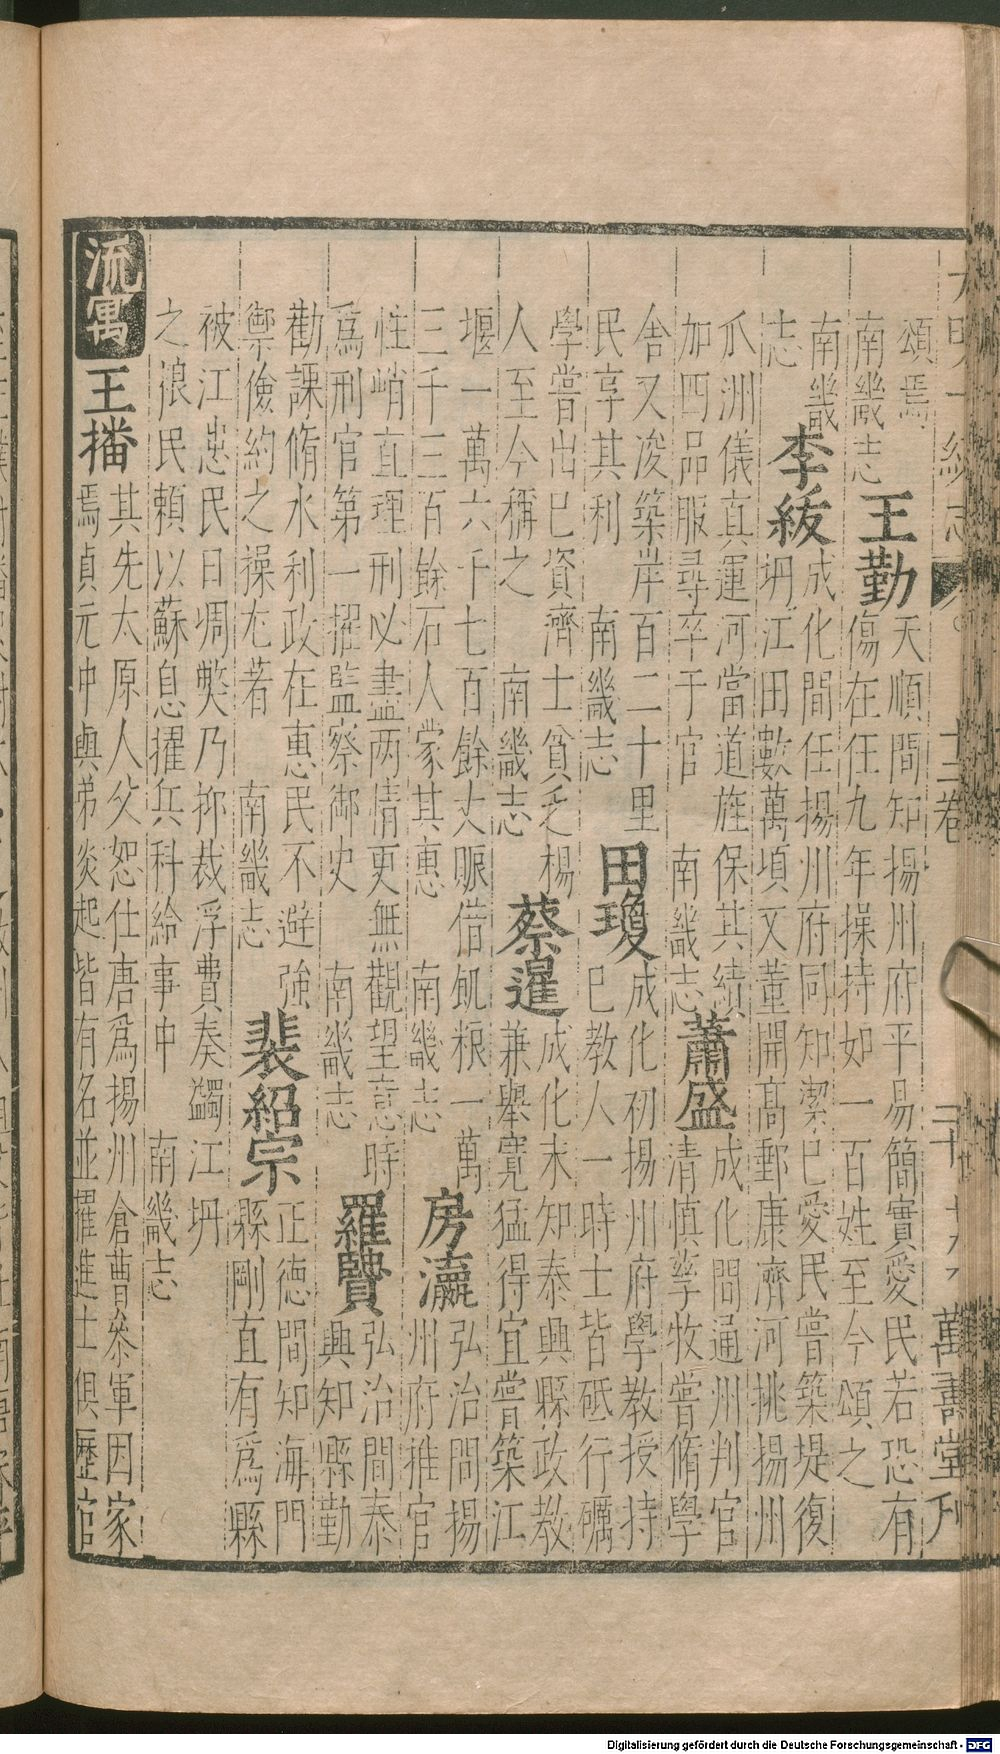 大明一統志 十二卷 萬壽堂刊
頌焉
南畿志
王勤
天順間知揚州府平易簡實愛民若恐有
傷在任九年操持如一百姓至今頌之
南畿
志
李紱
成化間任揚州府同知潔已愛民嘗築堤復
坍江田數萬頃又董開高郵康濟河挑揚州
瓜洲儀真運河當道旌保其績
加四品服尋卒于官 南畿志
蕭盛
成化間通州判官
清慎莘牧嘗脩學
舍又浚築岸百二十里
民享其利 南畿志
田瓊
成化初揚州府學教授持
已教人一時士皆砥行礪
學嘗出已資濟士貧乏楊
人至今稱之 南畿志
蔡暹
成化末知泰興縣政教
兼舉寬猛得宜嘗築江
堰一萬六千七百餘丈賑借飢粮一萬
三千三百餘石人蒙其惠 南畿志
房瀛
弘治間揚
州府推官
性峭直理刑必盡两情更無觀望意時
爲刑官第一擢監察御史 南畿志
羅贒
弘治間泰
興知縣勤
勸課脩水利政在惠民不避強
禦儉約之操尤著 南畿志
裴紹宗
正德間知海門
縣剛直有爲縣
被江患民日凋獘乃抑裁浮費奏蠲江坍
之粮民賴以蘇息擢兵科給事中 南畿志
流寓
王播
其先太原人父恕仕唐爲揚州倉曹叅軍因家
焉貞元中與弟炎起皆有名並擢進士俱歷官
Digitalisierung gefördert durch die Deutsche Forschungsgemeinschaft - DFG